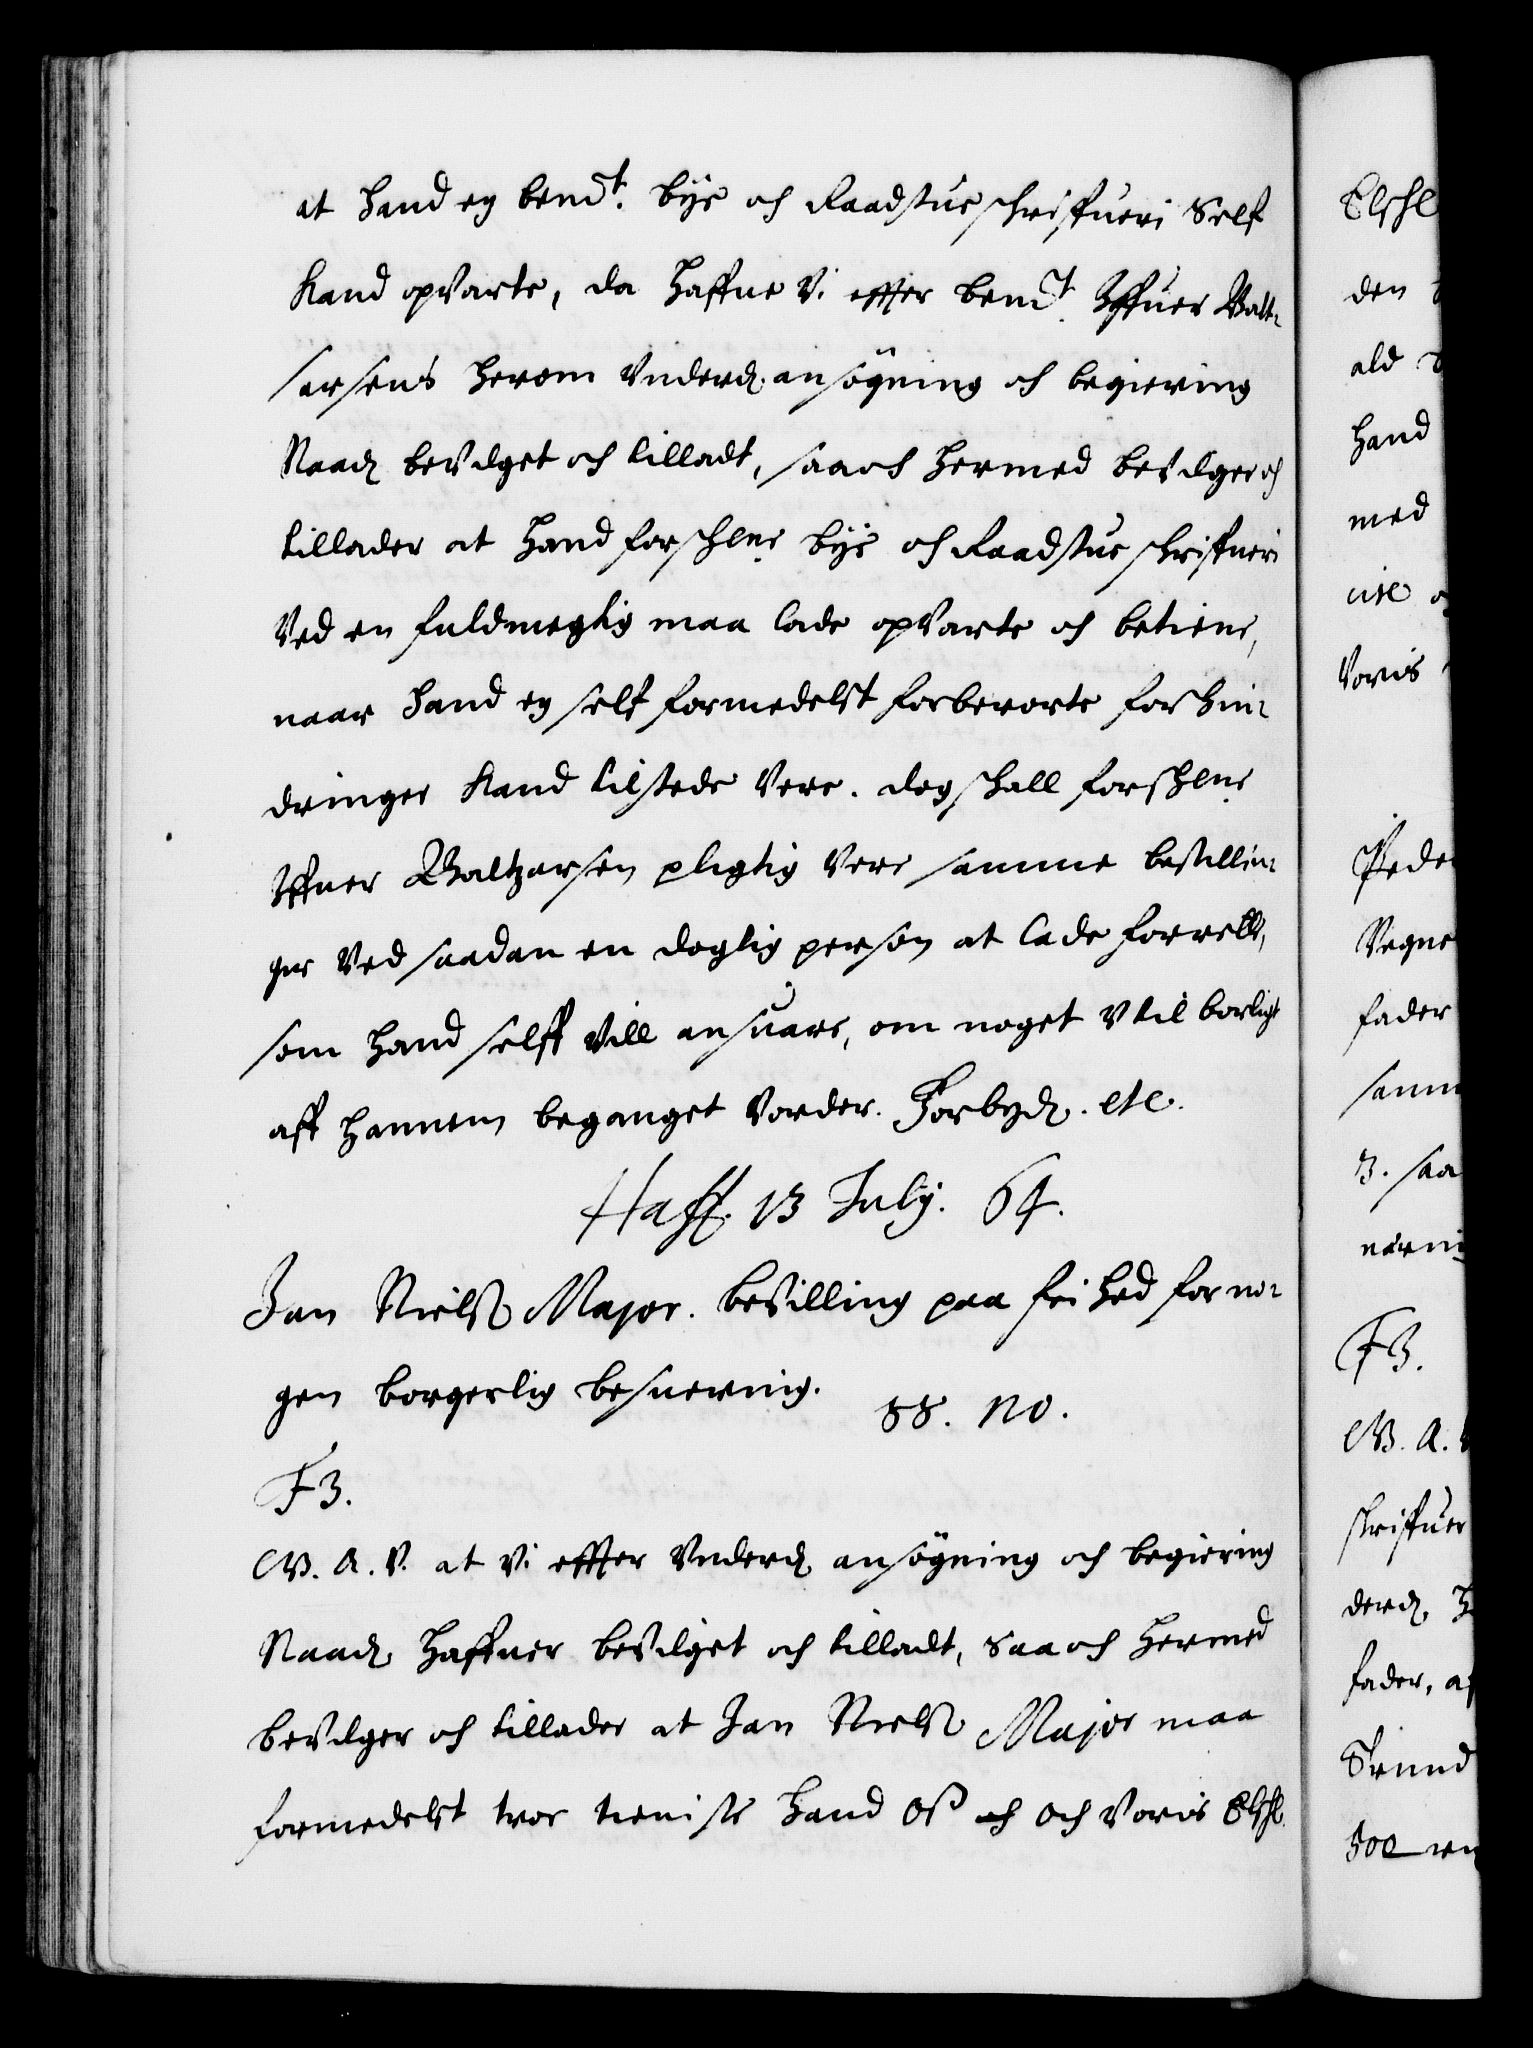 at hand ey bemt. bye och Raadstue schriffueri Self
kand opvarte, da haffue Vi effter bemt. Iffuer Balt-
sarsens herom Vnderd. ansögning och begiering
Naad. bevilget och tilladt, saa och hermed bevilger och
tillader at hand forschrne bye och Raadstue schriffueri
Ved en fuldmegtig maa lade opvarte och betiene,
naar hand ey self formedelst forberørte forhin-
dringer kand tilstede Vere. dog schall forschrne
Iffuer Baltzarsen pligtig Vere samme bestillin-
ger Ved saadan en døgtig person at lade forrette,
som hand selff Vill ansuare, om noget Vtilbørligt
aff hannem beganget Vorder. Forbyd. etc.
Haff. 13 July. 64.
Jan Nielss Major. bevilling paa frihed for no-
gen borgerlig besuering.
SS. No.
F3.
G. A. V. at Vi effter Vnderd. ansögning och begiering
Naad. haffuer bevilget och tilladt, Saa och hermed
bevilger och tillader at Jan Nielss Major maa
formedelst troe tieniste hand Oss och Och Voris Elschl.
Elschl
den
ald
hand
med
cise
Voris
Peder
Vegne
fader
samm
3. saa
nærni
F3.
G. A.
schriffuer
derd.
fader,
Trund
500